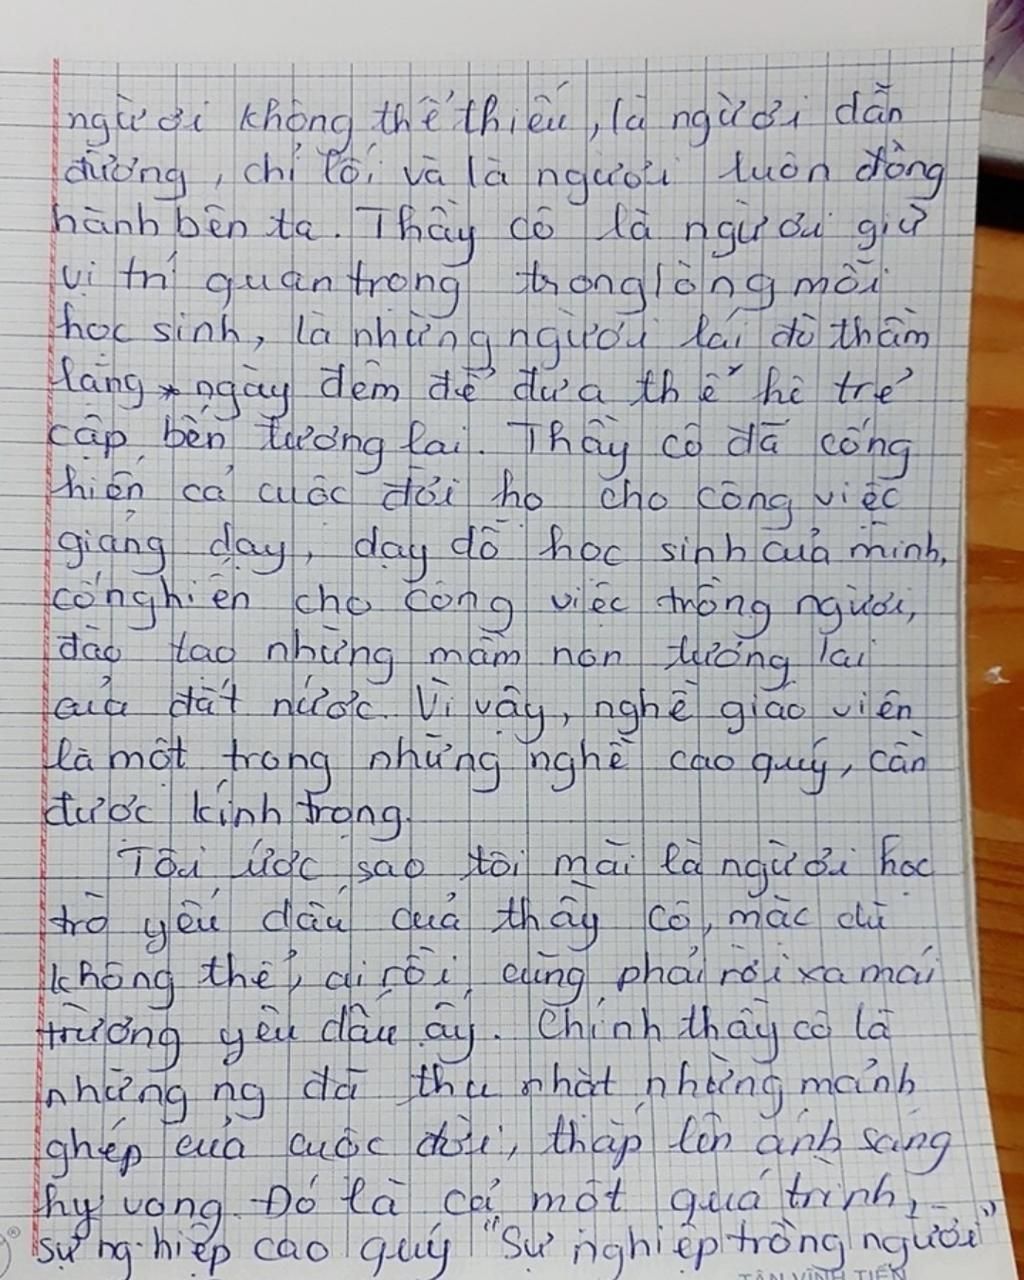 người không thể thiếu, là người dẫn
đường, chỉ lối và là người luôn đồng
hành bên ta. Thầy cô là người giữ
vị trí quan trọng trong lòng mỗi
học sinh, là những người lái đò thầm
lặng ngày đêm để đưa thế hệ trẻ
cập bến tương lai. Thầy cô đã cống
hiến cả cuộc đời họ cho công việc
giảng dạy, dạy dỗ học sinh của mình,
cống hiến cho công việc trồng người,
đào tạo những mầm non tương lai
của đất nước. Vì vậy, nghề giáo viên
là một trong những nghề cao quý, cần
được kính trọng.
Tôi ước sao tôi mãi là người học
trò yêu dấu của thầy cô, mặc dù
không thể, ai rồi cũng phải rời xa mái
trường yêu dấu ấy. Chính thầy cô là
những ng đã thu nhặt những mảnh
ghép của cuộc đời, thắp lên ánh sáng
hy vọng. Đó là cả một quá trình,
sự nghiệp cao quý "Sự nghiệp trồng người"
TÂN VĨNH TIẾN